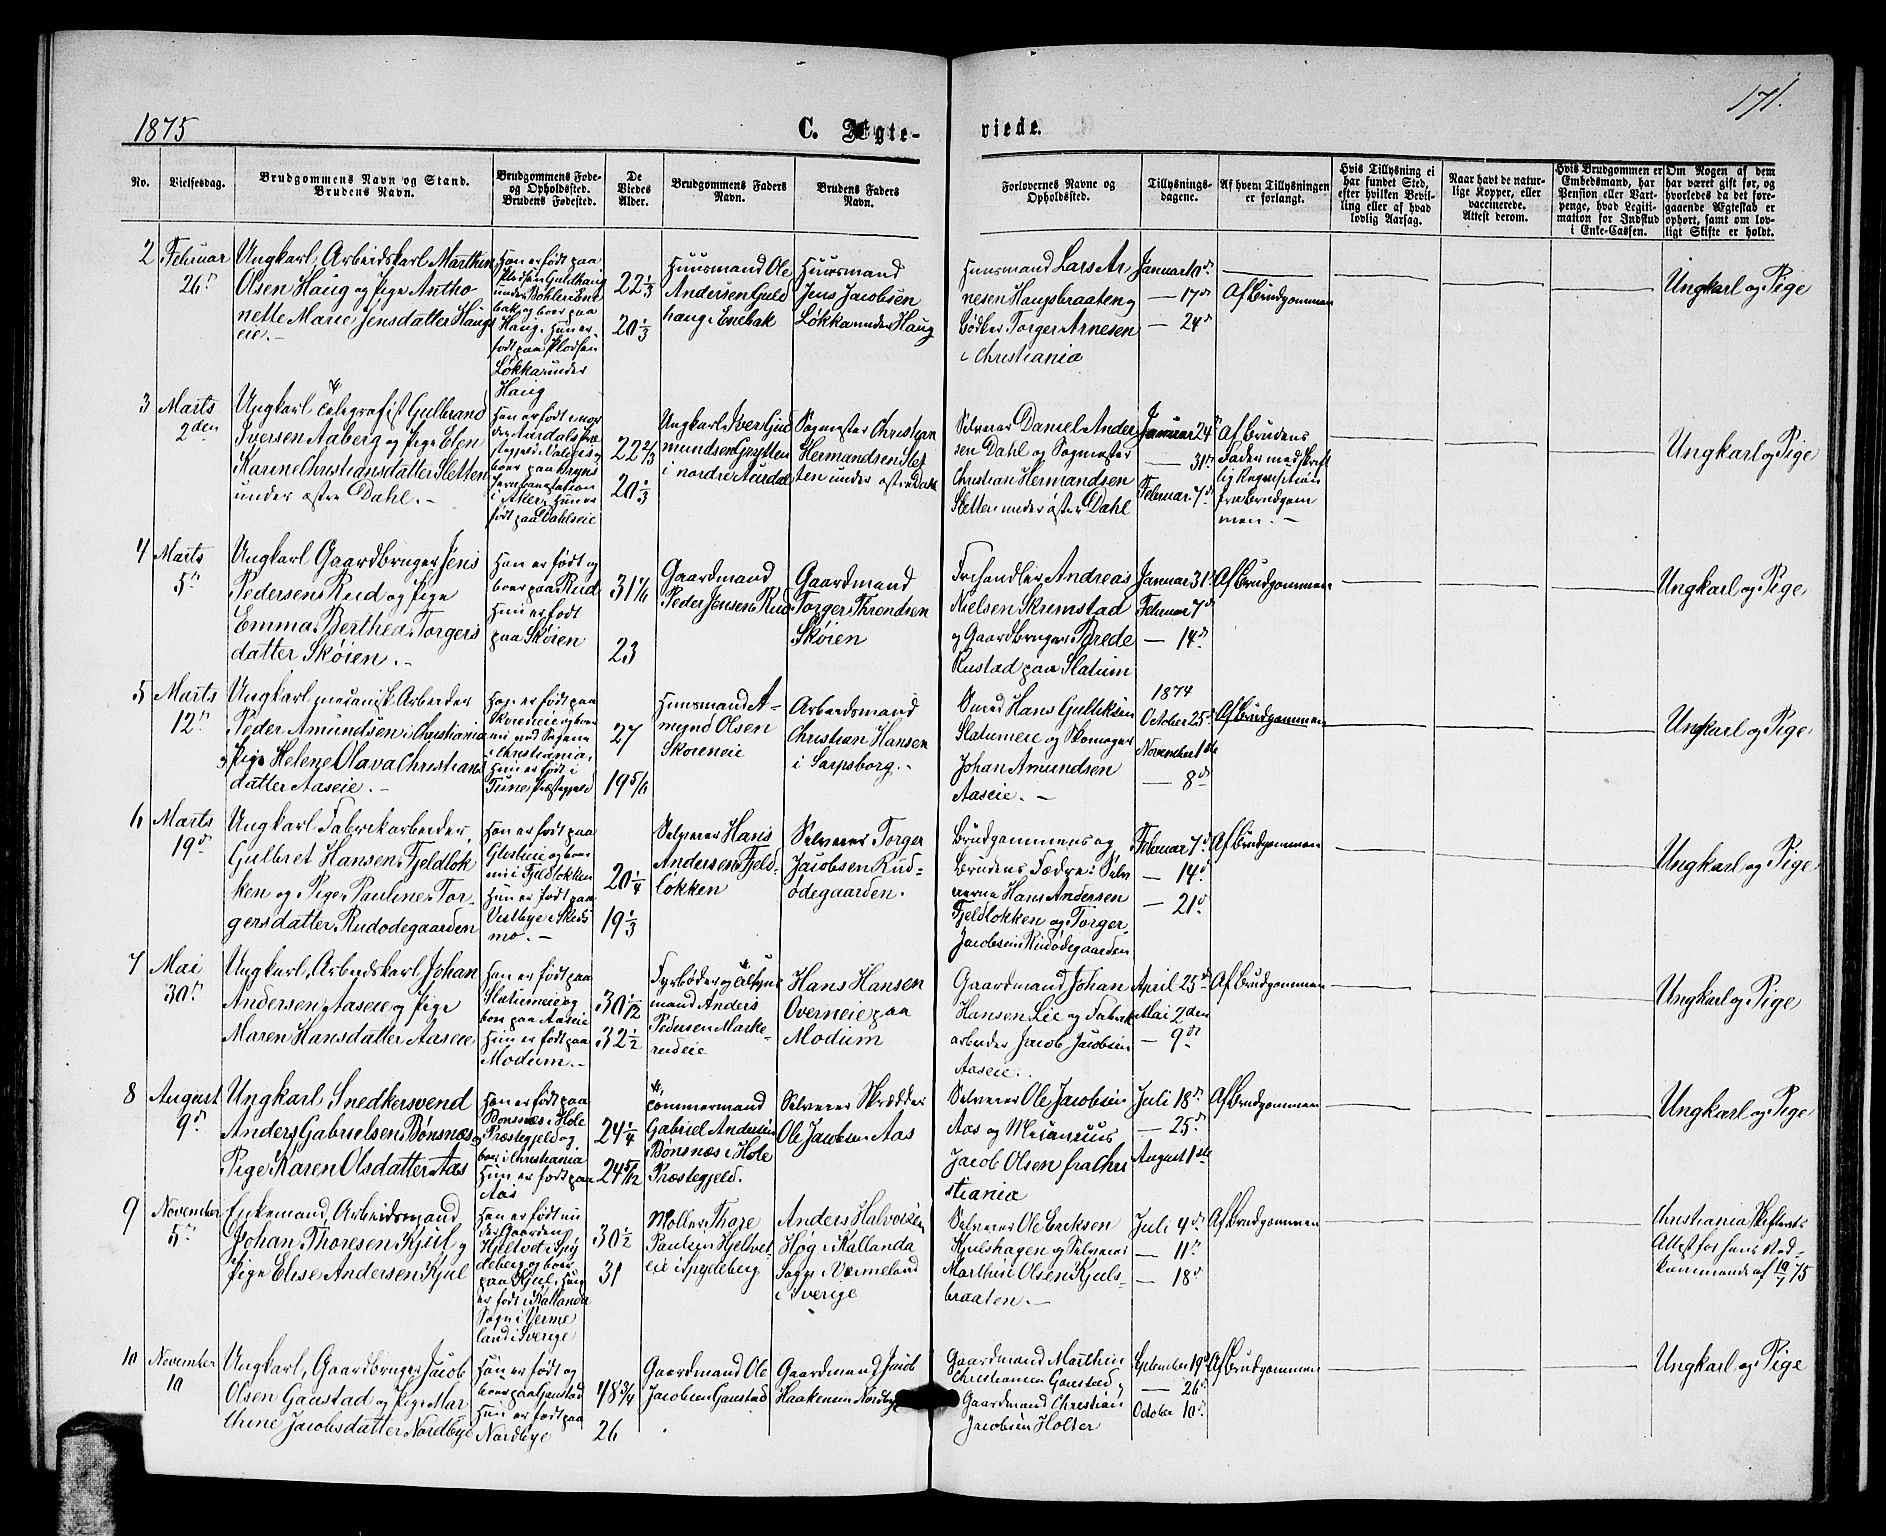 1875
C. Ægte-
viede.
171.
No.
Vielsesdag.
Brudgommens Navn og Stand.
Brudens Navn.
Brudgommens Føde-
og Opholdssted.
Brudens Fødested.
De
Viedes
Alder.
Brudgommens Faders
Navn.
Brudens Faders
Navn.
Forlovernes Navne og
Opholdssted.
Tillysnings-
dagene.
Af hvem Tillysningen
er forlangt.
Hvis Tillysning ei
har fundet Sted,
efter hvilken Bevil-
ling eller af hvad
lovlig Aarsag.
Naar havt de natur-
lige Kopper, eller
vaccinerede.
Attest derom.
Hvis Brudgommen er
Embedsmand, har
Pension eller Vart-
penge, hvad Legiti-
mation for Indskud
i Enke-Cassen.
Om Nogen af dem
har været gift før, og
hvorledes da det fore-
gaaende Ægteskab er
ophørt, samt om lov-
ligt Skifte er holdt.
2
Februar
26d
Ungkarl, Arbeidskarl Marthin
Olsen Haug og Pige Antho-
nette Marie Jensdatter Haugs
eie.-
Han er født paa
Pladsen Guldhaug
under Bøhler i Ene
bak og boer paa
Haug. Hun er
født paa Pladsen
Løkka under
Haug
22 1/3
20 1/3
Huusmand Ole
Andersen Guld
haug i Enebak
Huusmand
Jens Jacobsen
Løkka under Haug
Huusmand Lars Ar
nesen Haugsbraaten og
Bødker Torger Arnesen
i Christiania
Januar 10d
- 17d
- 24d
Af Brudgommen
Ungkarl og Pige
3
Marts
2den
Ungkarl Telegrafist Gulbrand
Iversen Aaberg og Pige Elen
Karine Christiansdatter Sletten
under østre Dahl.-
Han er født i nor
dre Aurdals Præ
stegjeld i Valders og
boer paa Bryns
Jernbanstation
i Aker, Hun er
født paa Dahlseie
22 2/3
20 1/3
Ungkarl Iver Gud
mundsen Grytten
i nordre Aurdal
Sagmester Christian
Hermandsen Slet
ten under østre Dahl
Selveier Daniel Ander
sen Dahl og Sagmester
Christian Hermandsen
Sletten under østre Dahl
Januar 24d
- 31d
Februar 7d
Af Brudens
Fader med skrift
lig Reqvisition
fra Brudgom
men.-
Ungkarl og Pige
4
Marts
5d
Ungkarl Gaardbruger Jens
Pedersen Rud og Pige
Emma Berthea Torgers
datter Skøien.-
Han er født og
boer paa Rud
Hun er født
paa Skøien
31 1/6
23
Gaardmand
Peder Jensen Rud
Gaardmand
Torger Throndsen
Skøien
Frihandler Andreas
Nielsen Skrimstad
og Gaardbruger Brede
Rustad paa Slatum
Januar 31d
Februar 7d
- 14d
Af Brudgommen
Ungkarl og Pige
5
Marts
12d
Ungkarl mecanisk Arbeider
Peder Amundsen i Christiania
og Pige Helene Olava Christians
datter Aaseie.-
Han er født paa
Skøieneie og boer
nu ved Sagene
i Christiania,
Hun er født i
Tune Præstegjeld
27
19 5/6
Huusmand A-
mund Olsen
Skøieneie
Arbeidsmand
Christian Hansen
i Sarpsborg.-
Smed Hans Gulliksen
Slatumeie og Skomager
Johan Amundsen
Aaseie.-
1874
October 25d
November 1ste
- 8d
Af Brudgommen
Ungkarl og Pige
6
Marts
19d
Ungkarl Fabrikarbeider,
Gulbret Hansen Fjeldløk-
ken og Pige Pauline Tor-
gersdatter Rudødegaarden
Han er født paa
Glostueie og boer
nu i Fjeldløkken
Hun er født paa
Vestbye i Skeds
mo.-
20 1/4
19 1/3
Selveier Hans
Andersen Fjeld-
løkken
Selveier Torger
Jacobsen Rud-
ødegaarden.
Brudgommens og
Brudens Fædre: Selv
eierne Hans Andersen
Fjeldløkken og Torger
Jacobsen Rudødegaarden
Februar 7d
- 14d
- 21d
Af Brudgommen
Ungkarl og Pige
7
Mai
30d
Ungkarl, Arbeidskarl Johan
Andersen Aaseie og Pige
Maren Hansdatter Aaseie
Han er født paa
Slatumeie og
boer paa Aaseie
Hun er født paa
Modum.-
30 1/12
32 1/2
Fyrbøder og
mand Anders
Pedersen Marke-
rudeie
Hans Hansen
Overneie paa
Modum
Gaardmand Johan
Hansen Lie og Fabrik
arbeider Jacob Jacobsen
Aaseie.
April 25d
Mai 2den
- 9d
Af Brudgommen
Ungkarl og Pige
8
August
9d
Ungkarl Snedkersvend
Anders Gabrielsen Bønsnæs og
Pige Karen Olsdatter Aas
Han er født paa
Bønsnæs i Hole
Præstegjeld og
boer i Christiania
Hun er født paa
Aas
24 1/4
24 5/12
Tømmermand
Gabriel Andersen
Bønsnæs i Hole
Præstegjeld.
Selveier Skrædder
Ole Jacobsen Aas
Selveier Ole Jacobsen
Aas og Mecanicus
Jacob Olsen fra Chri
stiania
Juli 18d
- 25d
August 1ste
Af Brudgommen
Ungkarl og Pige
9
November
5d
Enkemand, Arbeidsmand
Johan Thoresen Kjul og
Pige Elise Andersen Kjul
Han er født un
der Gaarden
Hjeltvet i Spy
deberg og boer
paa Kjul, Hun
er født i Kallanda
Sogn i Verme
land i Sverige
30 1/2
31
Møller Thore
Paulsen Hjelvet
eie i Spydeberg
Anders Halvorsen
Høg i Kallanda
Sogn i Vermeland
i Sverige
Selveier Ole Eriksen
Kjulshagen og Selveier
Marthin Olsen Kjuls-
braaten.-
Juli 4d
- 11d
- 18d
Af Brudgommen
Christiania Skifterets
Attest for hans Ved-
kommende af 19/7 75
10
November
10
Ungkarl, Gaardbruger Jacob
Olsen Gaustad og Pige Mar
thine Jacobsdatter Nordbye
Han er født og
boer paa Gaustad
Hun er født paa
Nordbye
48 3/4
26
Gaardmand Ole
Jacobsen Gaustad
Gaardmand Jacob
Haakensen Nordbye
Gaardmand Marthin
Christiansen Gaustad og
Gaardmand Christian
Jacobsen Holter
September 19d
- 26d
October 10d
Af Brudgommen
Ungkarl og Pige